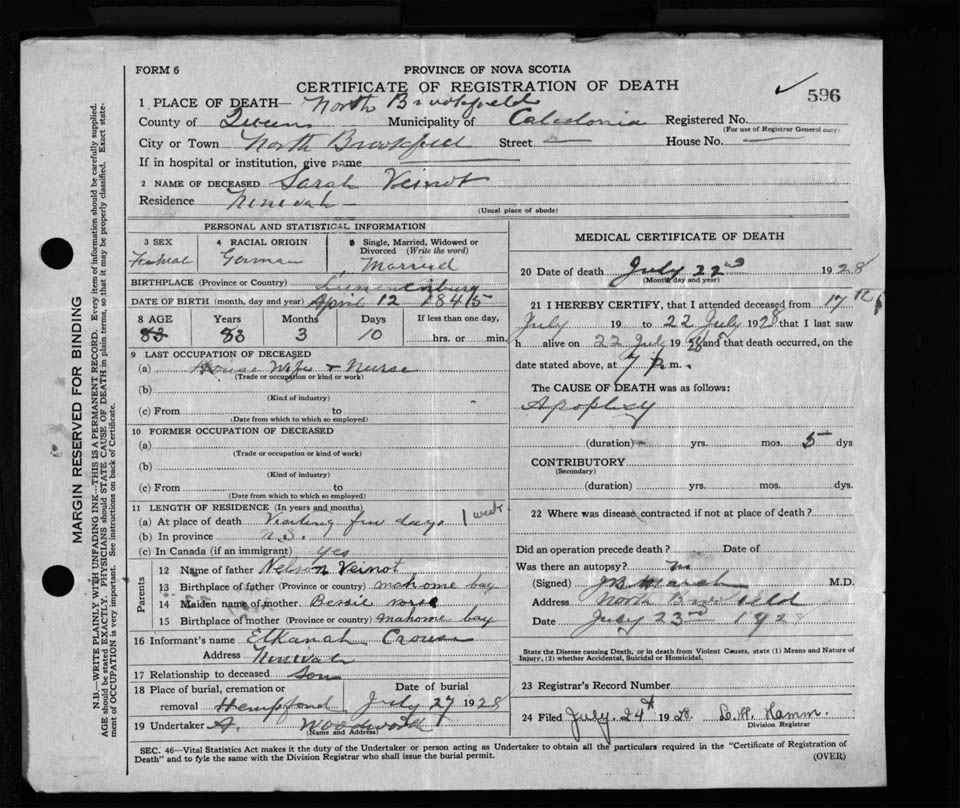 FORM 6
PROVINCE OF NOVA SCOTIA
CERTIFICATE OF REGISTRATION OF DEATH
✓ 596
1 PLACE OF DEATH— North Brookfield
County of Queens Municipality of Caledonia Registered No.
(For use of Registrar General only)
City or Town North Brookfield Street — House No. —
If in hospital or institution, give name
2 NAME OF DECEASED Sarah Veinot
Residence Ninevah
(Usual place of abode)
PERSONAL AND STATISTICAL INFORMATION
3 SEX 4 RACIAL ORIGIN 5 Single, Married, Widowed or Divorced (Write the word)
Female German Married
BIRTHPLACE (Province or Country) Lunenburg
DATE OF BIRTH (month, day and year) April 12 1845
8 AGE Years Months Days If less than one day,
83 83 3 10 hrs. or min.
9 LAST OCCUPATION OF DECEASED
(a) House Wife & Nurse
(Trade or occupation or kind or work)
(b)
(Kind of industry)
(c) From to
(Date from which to which so employed)
10 FORMER OCCUPATION OF DECEASED
(a)
(Trade or occupation or kind of work)
(b)
(Kind of industry)
(c) From to
(Date from which to which so employed)
11 LENGTH OF RESIDENCE (In years and months)
(a) At place of death Visiting few days 1 week
(b) In province N.S.
(c) In Canada (if an immigrant) yes
Parents
12 Name of father Nelson Veinot
13 Birthplace of father (Province or country) mahome bay
14 Maiden name of mother Bessie
15 Birthplace of mother (Province or country) mahome bay
16 Informant's name Elkanah Crouse
Address Ninevah
17 Relationship to deceased Son
18 Place of burial, cremation or removal Date of burial
Hempford July 27 1928
19 Undertaker A. Woodworth
(Name and Address)
MEDICAL CERTIFICATE OF DEATH
20 Date of death July 22nd 1928
(Month day and year)
21 I HEREBY CERTIFY, that I attended deceased from 17th
July 19 to 22 July 1928 that I last saw
h alive on 22 July 1928 and that death occurred, on the
date stated above, at 7 p. m.
The CAUSE OF DEATH was as follows:
Apoplexy
(duration) yrs. mos. 5 dys
CONTRIBUTORY
(Secondary)
(duration) yrs. mos. dys.
22 Where was disease contracted if not at place of death?
Did an operation precede death? Date of
Was there an autopsy?
(Signed) M.D.
Address North Brookfield
Date July 23rd 192
State the Disease causing Death, or in death from Violent Causes, state (1) Means and Nature of
Injury, (2) whether Accidental, Suicidal or Homicidal.
23 Registrar's Record Number
24 Filed July. 24th 1928. L. H. Hamm.
Division Registrar
SEC. 46—Vital Statistics Act makes it the duty of the Undertaker or person acting as Undertaker to obtain all the particulars required in the "Certificate of Registration of
Death" and to fyle the same with the Division Registrar who shall issue the burial permit.
(OVER)
MARGIN RESERVED FOR BINDING
N.B.—WRITE PLAINLY WITH UNFADING INK—THIS IS A PERMANENT RECORD. Every item of information should be carefully supplied.
AGE should be stated EXACTLY. PHYSICIANS should STATE CAUSE OF DEATH in plain terms, so that it may be properly classified. Exact state-
ment of OCCUPATION is very important. See instructions on back of Certificate.